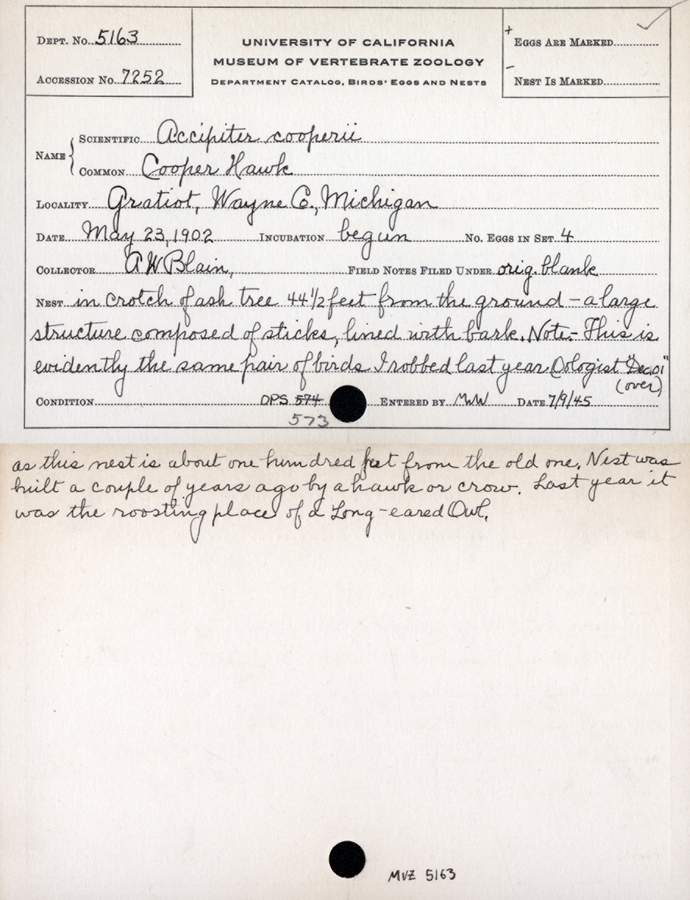 DEPT. NO. 5163
ACCESSION NO. 7252
UNIVERSITY OF CALIFORNIA
MUSEUM OF VERTEBRATE ZOOLOGY
DEPARTMENT CATALOG, BIRDS' EGGS AND NESTS
+ EGGS ARE MARKED
- NEST IS MARKED
NAME { SCIENTIFIC Accipiter cooperii
COMMON Cooper Hawk
LOCALITY Gratiot, Wayne Co., Michigan
DATE May 23, 1902 INCUBATION begun NO. EGGS IN SET 4
COLLECTOR A W Blain, FIELD NOTES FILED UNDER orig. blank
NEST in crotch of ash tree 44 1/2 feet from the ground - a large
structure composed of sticks, lined with bark. Note:- This is
evidently the same pair of birds I robbed last year Oologist "Dec. 01"
(over)
CONDITION OPS 574 ENTERED BY MWW DATE 7/9/45
573
as this nest is about one hundred feet from the old one. Nest was
built a couple of years ago by a hawk or crow. Last year it
was the roosting place of a Long-eared Owl.
MVZ 5163